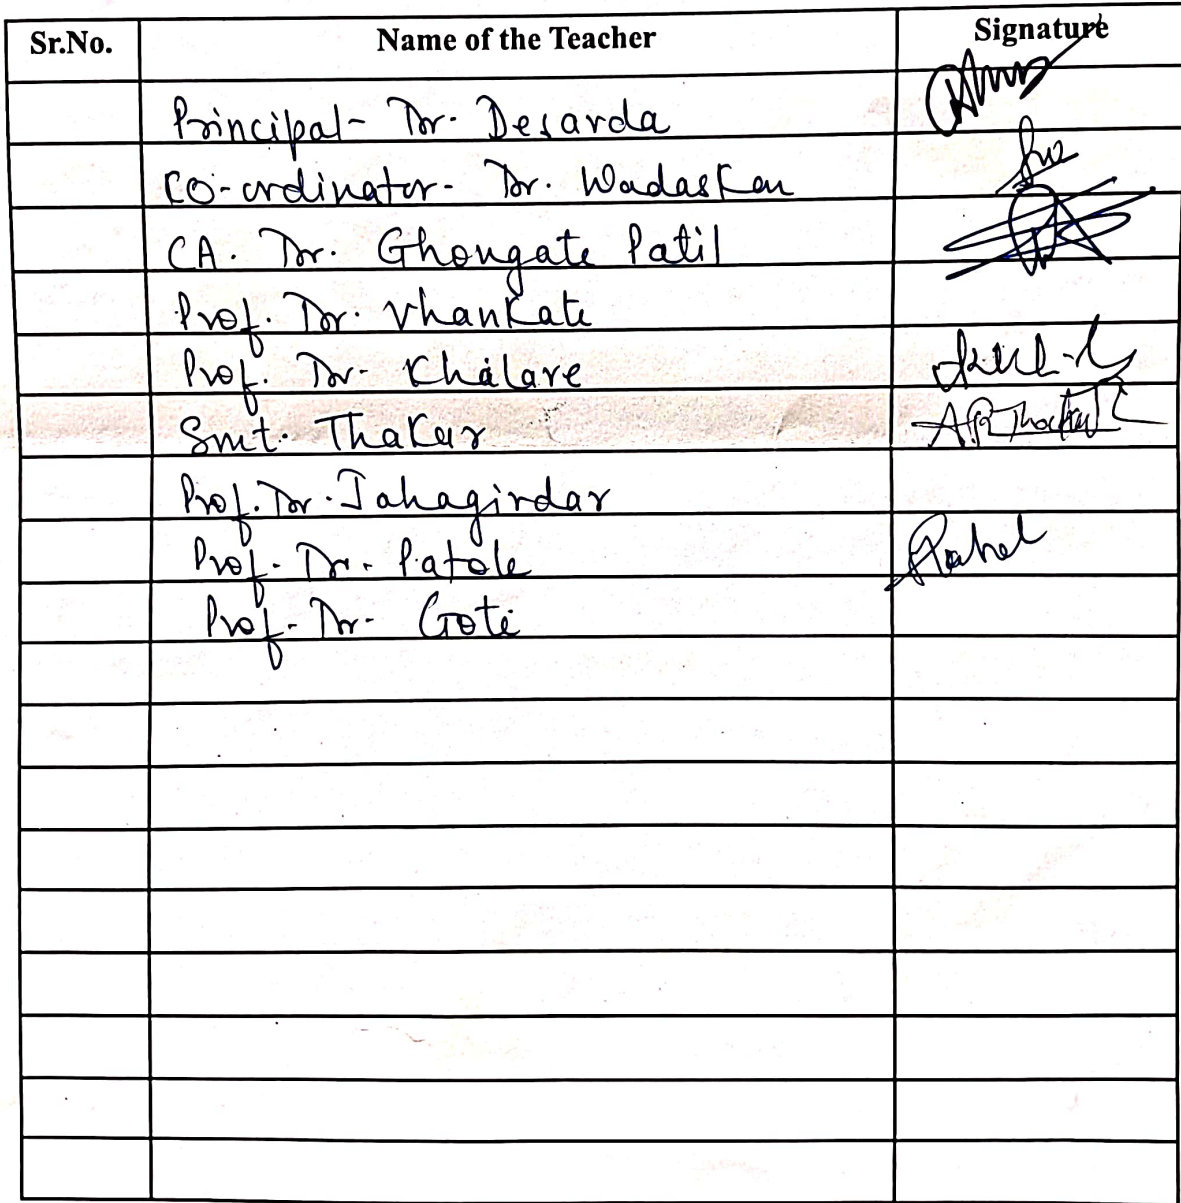 Sr.No. Name of the Teacher Signature
Principal- Dr. Desarda
CO-ordinator- Dr. Wadaskar
CA. Dr. Ghongate Patil
Prof. Dr. Vhankate
Prof. Dr- Khalare
Smt. Thakur
Prof. Dr. Jahagirdar
Prof- Dr. Patole
Prof- Dr- Gote